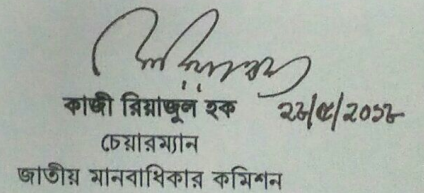 কাজী রিয়াজুল হক ২২/৫/২০১৮
চেয়ারম্যান
জাতীয় মানবাধিকার কমিশন